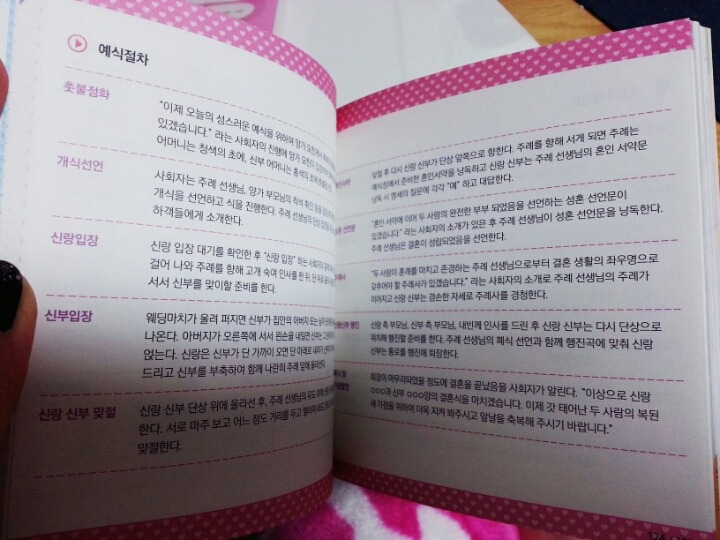 예식절차
촛불점화
"이제 오늘의 성스러운 예식을 위하여 양가 모친께서
있겠습니다." 라는 사회자의 진행에 양가 모친이
어머니는 청색의 초에, 신부 어머니는 홍색의 초에
개식선언
사회자는 주례 선생님, 양가 부모님의 착석 확인
개식을 선언하고 식을 진행한다. 주례 선생님의
하객들에게 소개한다.
신랑입장
신랑 입장 대기를 확인한 후 "신랑 입장" 하는 사회자의
걸어 나와 주례를 향해 고개 숙여 인사를 한 뒤, 단
서서 신부를 맞이할 준비를 한다.
신부입장
웨딩마치가 울려 퍼지면 신부가 집안의 아버지 또는
나온다. 아버지가 오른쪽에 서서 왼손을 내밀면 신부는
얹는다. 신랑은 신부가 단 가까이 오면 단 아래로 내려가
드리고 신부를 부축하여 함께 나란히 주례 앞에
신랑 신부 맞절
신랑 신부 단상 위에 올라선 후, 주례 선생님의
한다. 서로 마주 보고 어느 정도 거리를 두고
맞절한다.
맞절 후 다시 신랑 신부가 단상 앞쪽으로 향한다. 주례를 향해 서게 되면 주례는
예식장에서 준비한 혼인서약을 낭독하고 신랑 신부는 주례 선생님의 혼인 서약문
낭독 시 맹세의 질문에 각각 "예" 하고 대답한다.
선언
"혼인 서약에 이어 두 사람의 완전한 부부 되었음을 선언하는 성혼 선언문이
있겠습니다." 라는 사회자의 소개가 있은 후 주례 선생님이 성혼 선언문을 낭독한다.
주례 선생님은 결혼이 성립되었음을 선언한다.
"두 사람의 혼례를 마치고 존경하는 주례 선생님으로부터 결혼 생활의 좌우명으로
갖추어야 할 주례사가 있겠습니다." 라는 사회자의 소개로 주례 선생님의 주례가
이어지고 신랑 신부는 겸손한 자세로 주례사를 경청한다.
행진
신랑 측 부모님, 신부 측 부모님, 내빈께 인사를 드린 후 신랑 신부는 다시 단상으로
위치해 행진할 준비를 한다. 주례 선생님의 폐식 선언과 함께 행진곡에 맞춰 신랑
신부는 통로를 행진해 퇴장한다.
퇴장이 마무리되었을 정도에 결혼을 끝났음을 사회자가 알린다. "이상으로 신랑
○○○과 신부 ○○○양의 결혼식을 마치겠습니다. 이제 갓 태어난 두 사람의 복된
새 가정을 위하여 더욱 지켜 봐주시고 앞날을 축복해 주시기 바랍니다."